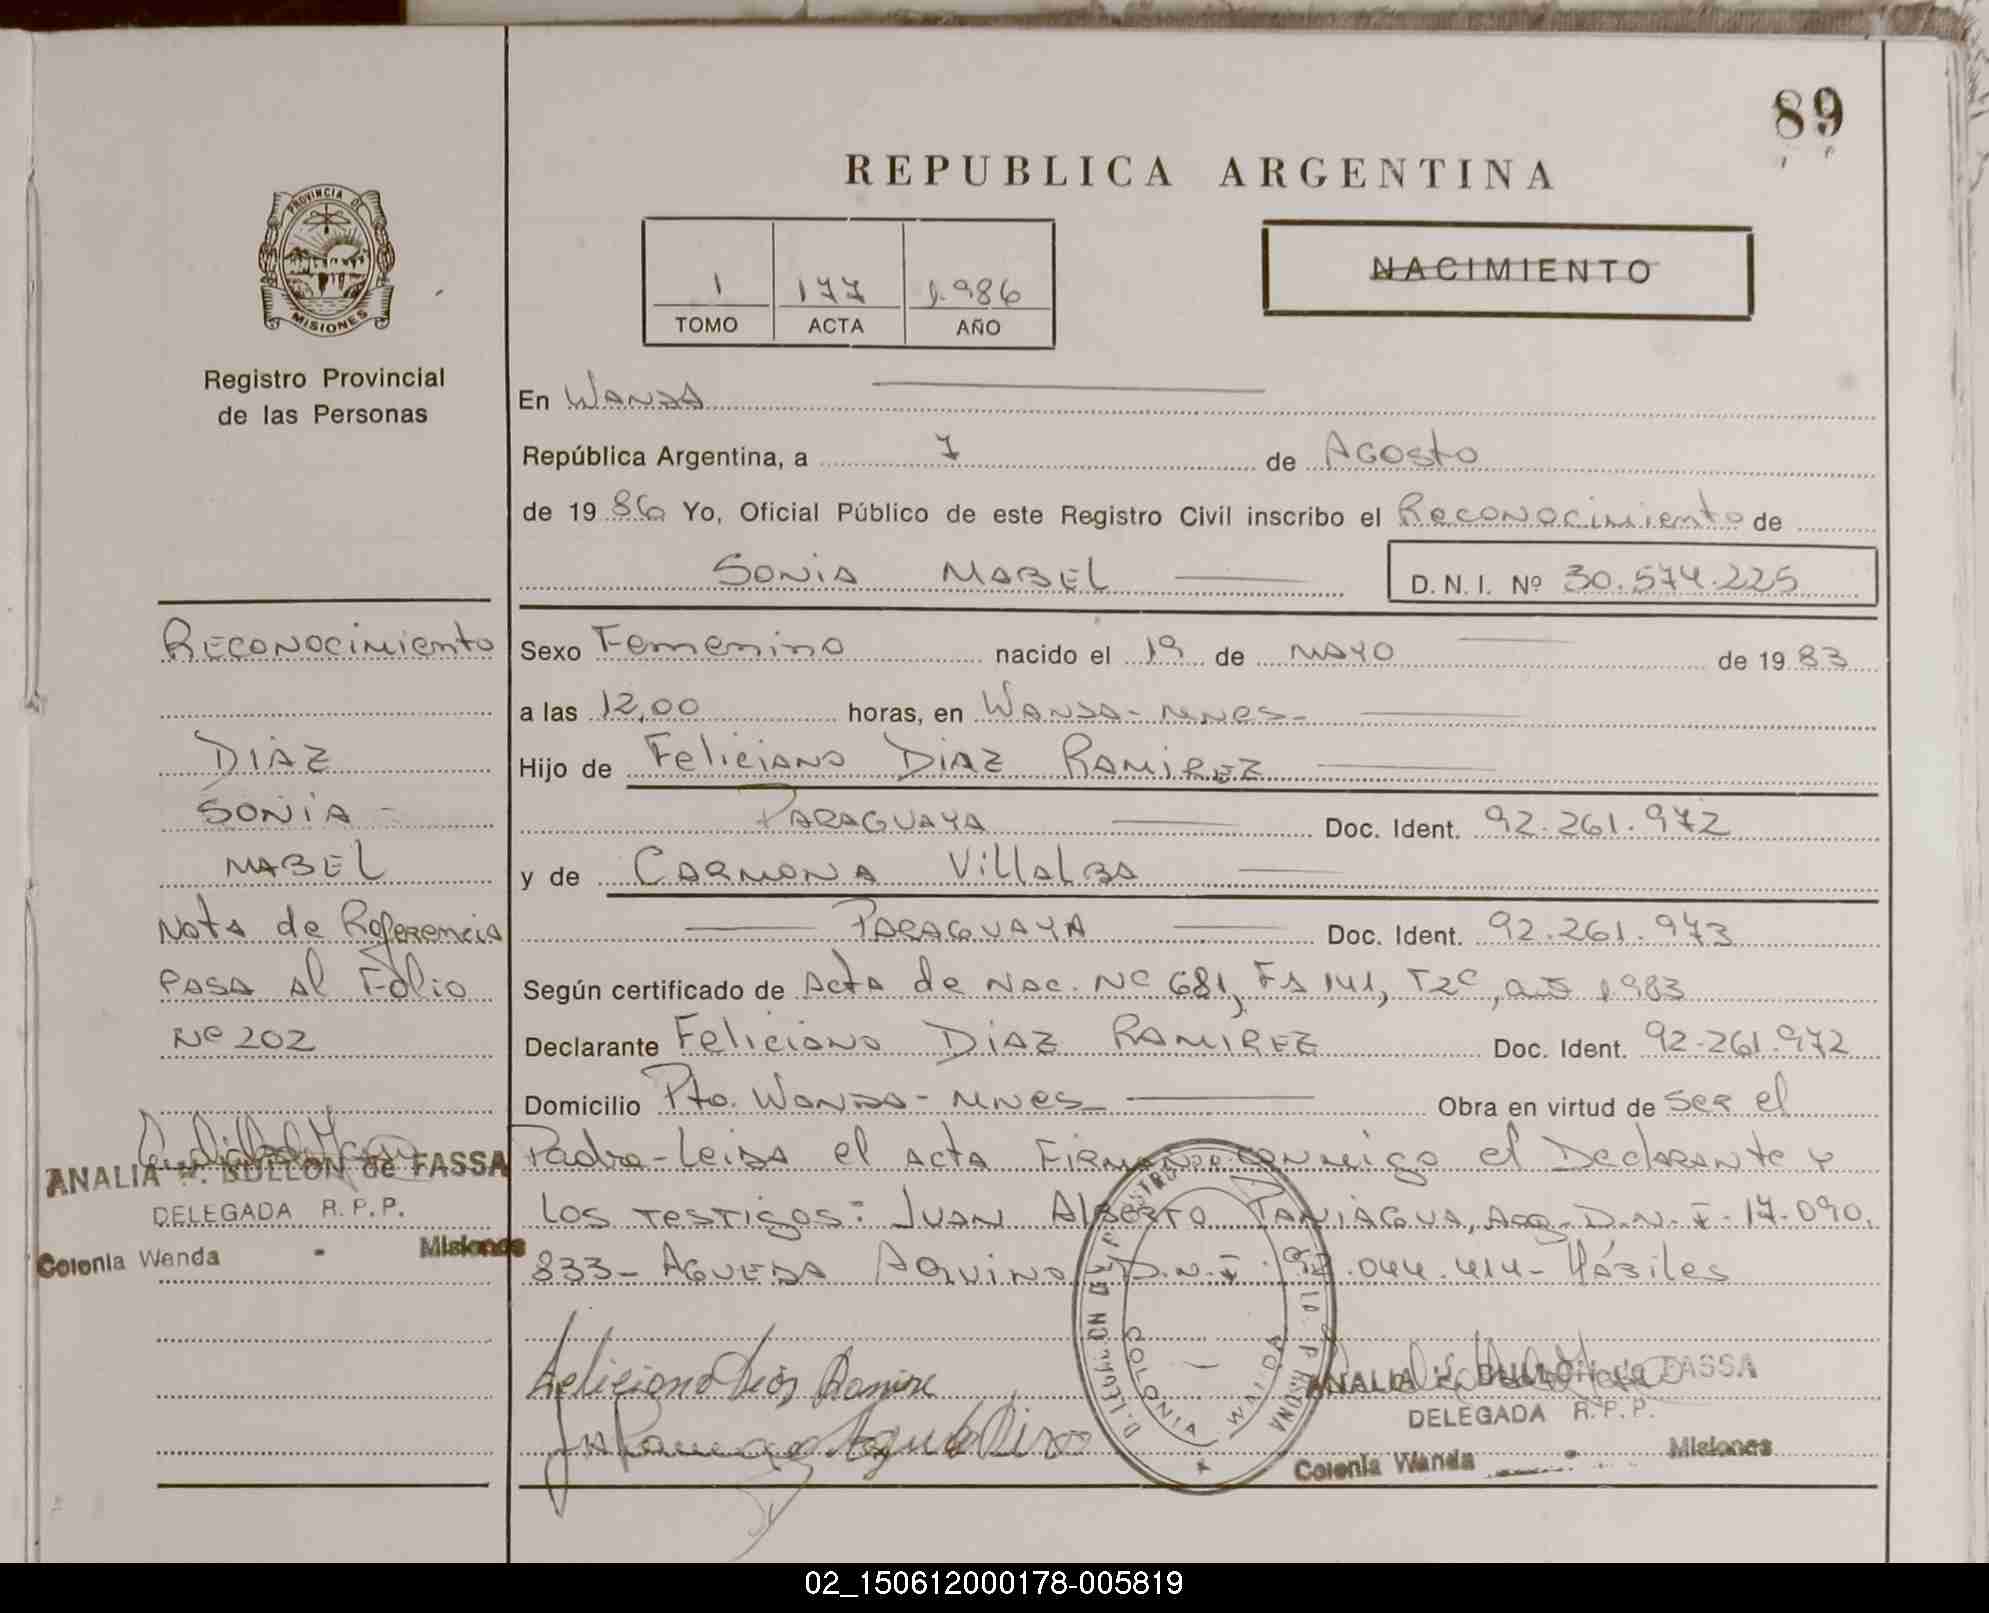 89
REPUBLICA ARGENTINA
PROVINCIA DE
MISIONES
Registro Provincial
de las Personas
1 177 1.986
TOMO ACTA AÑO
NACIMIENTO
En WANDA
República Argentina, a 7 de AGOSTO
de 19 86 Yo, Oficial Público de este Registro Civil inscribo el Reconocimiento de
SONIA MABEL D. N. I. Nº 30.574.225
Sexo Femenino nacido el 19 de MAYO de 19 83
a las 12,00 horas, en WANDA - MNES -
Hijo de Feliciano DIAZ RAMIREZ
PARAGUAYA Doc. Ident. 92.261.972
y de CARMONA VillALBA
PARAGUAYA Doc. Ident. 92.261.973
Según certificado de Acta de Nac. Nº 681, Fs 141, T2º, año 1983
Declarante Feliciano DIAZ RAMIREZ Doc. Ident. 92.261.972
Domicilio Pto. WANDA - MNES - Obra en virtud de ser el
Padre - Leida el acta FIRMANDO conmigo el Declarante y
los testigos: JUAN AlBERTO PANIAGUA, Arg. D.N.I. 17.090.
833 - AGUEDA AQUINO D.N.I. 92.044.414 - Hábiles
RECONOCIMIENTO
DIAZ
SONIA -
MABEL
Nota de Referencia
PASA Al Folio
Nº 202
ANALIA BULLON de FASSA
DELEGADA R.P.P.
Colonia Wanda - Misiones
Feliciano Dias Ramire
COLONIA WANDA
ANALIA BULLON de FASSA
DELEGADA R.P.P.
Colonia Wanda - Misiones
02_150612000178-005819